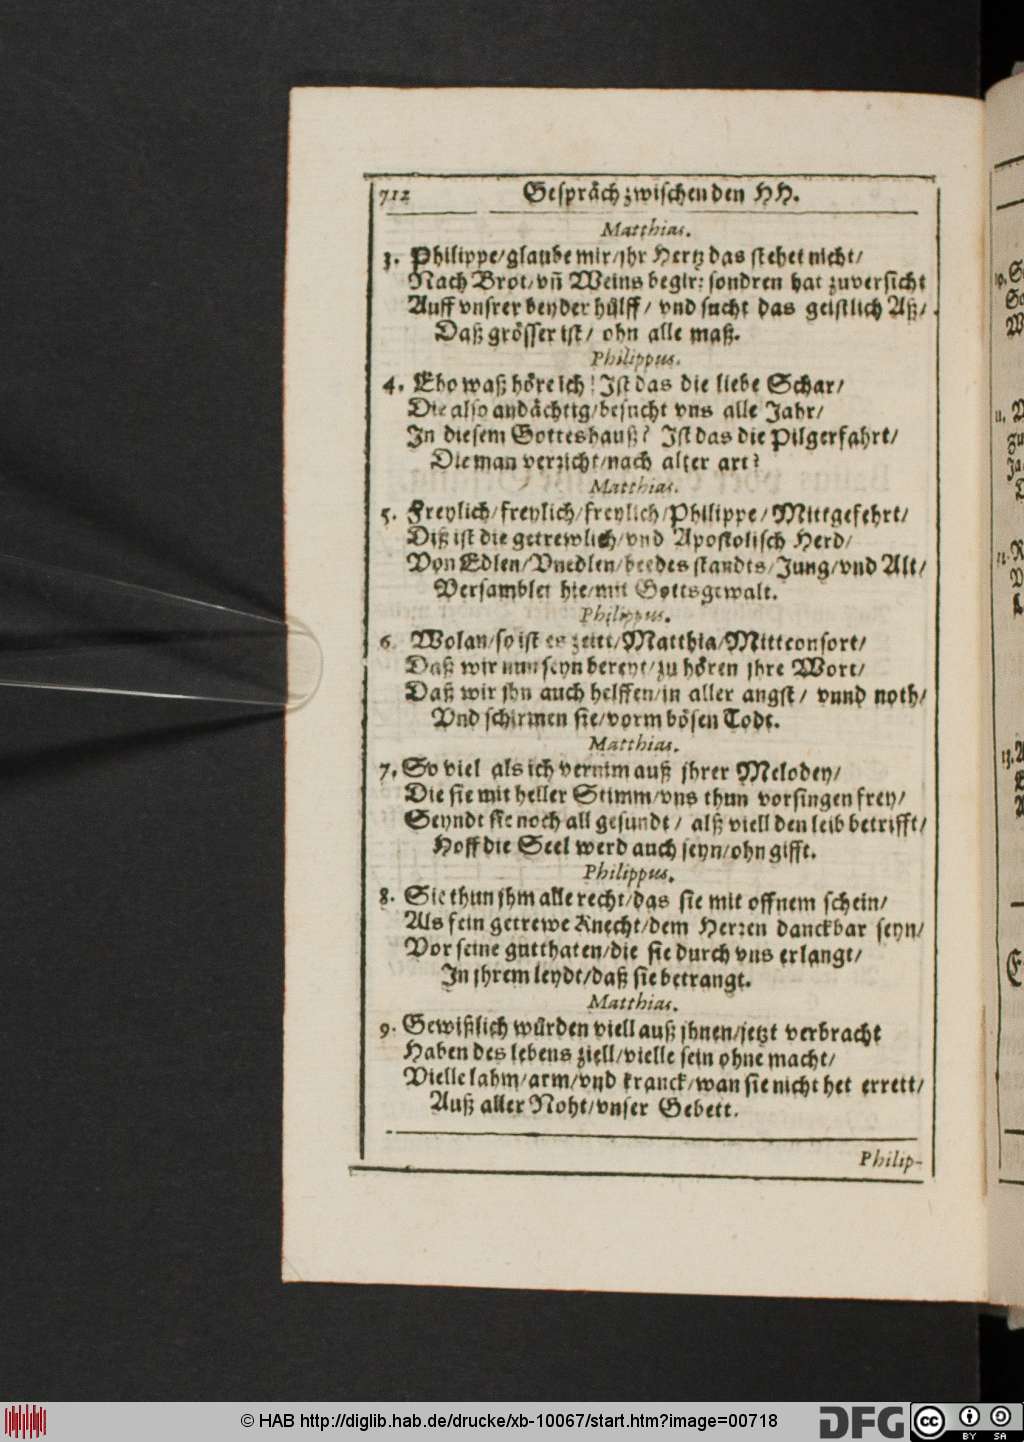 712 Gespräch zwischen den HH.
Matthias.
3. Philippe/glaube mir/jhr Hertz das stehet nicht/
Nach Brot/vñ Weins begir: sondren hat zuversicht
Auff vnsrer beyder hülff/ vnd sucht das geistlich Aß/
Daß grösser ist/ ohn alle maß.
Philippus.
4. Eho waß höre ich! Ist das die liebe Schar/
Die also andächtig/besucht vns alle Jahr/
In diesem Gotteshauß? Ist das die Pilgerfahrt/
Die man verricht/nach alter art?
Matthias.
5. Freylich/freylich/freylich/Philippe/Mittgefehrt/
Diß ist die getrewlich/vnd Apostolisch Herd/
Von Edlen/Vnedlen/beedes standts/Jung/vnd Alt/
Versamblet hie/mit Gottsgewalt.
Philippus.
6. Wolan/so ist es zeitt/Matthia/Mittconsort/
Daß wir nun seyn bereyt/zu hören jhre Wort/
Daß wir jhn auch helffen/in aller angst/ vnnd noth/
Vnd schirmen sie/vorm bösen Todt.
Matthias.
7. So viel als ich vernim auß jhrer Melodey/
Die sie mit heller Stimm/vns thun vorsingen frey/
Seyndt sie noch all gesundt/ alß viell den leib betrifft/
Hoff die Seel werd auch seyn/ohn gifft.
Philippus.
8. Sie thun jhm alle recht/das sie mit offnem schein/
Als fein getrewe Knecht/dem Herren danckbar seyn/
Vor seine gutthaten/die sie durch vns erlangt/
In jhrem leydt/daß sie betrangt.
Matthias.
9. Gewißlich würden viell auß jhnen/jetzt verbracht
Haben des lebens ziell/vielle sein ohne macht/
Vielle lahm/arm/vnd kranck/wan sie nicht het errett/
Auß aller Noht/vnser Gebett.
Philip-
© HAB http://diglib.hab.de/drucke/xb-10067/start.htm?image=00718
DFG
cc BY SA